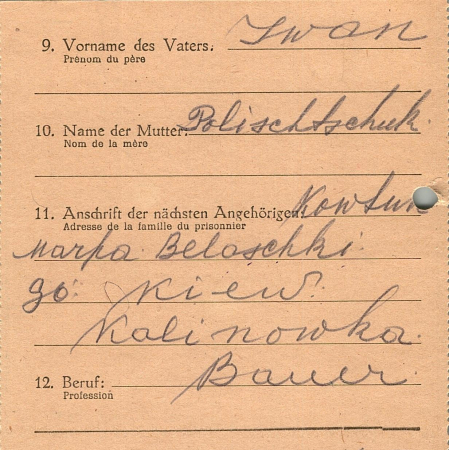 9. Vorname des Vaters: Iwan
Prénom du père
10. Name der Mutter: Polischtschuk.
Nom de la mère
11. Anschrift der nächsten Angehörigen: Kowtun
Adresse de la famille du prisonnier
Marfa Belaschki
go. Kiew.
Kalinowka.
12. Beruf: Bauer.
Profession